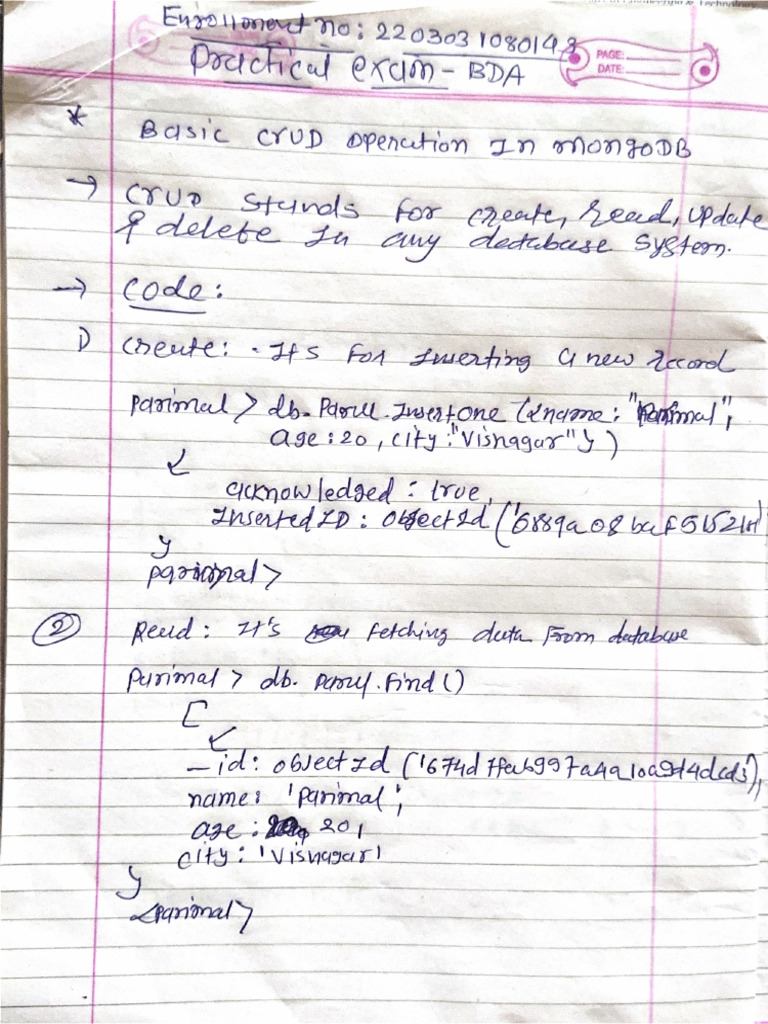 Enrollment no: 2203031080143
Practical exam - BDA
PAGE:
DATE:
* Basic CRUD operation In mongoDB
→ CRUD stands for create, read, update
& delete In any database system.
→ code:
1) create: • It's for Inserting a new record
parimal > db.Parul.InsertOne ({name: "Parimal",
age: 20, city: "Visnagar"})
{
acknowledged: true,
InsertedID: ObjectId (
}
parimal >
② Read: It's fetching data from database
Parimal > db.parul.find()
[
{
_id: ObjectId (
name: 'parimal',
age: 20,
city: 'Visnagar'
}
<parimal>